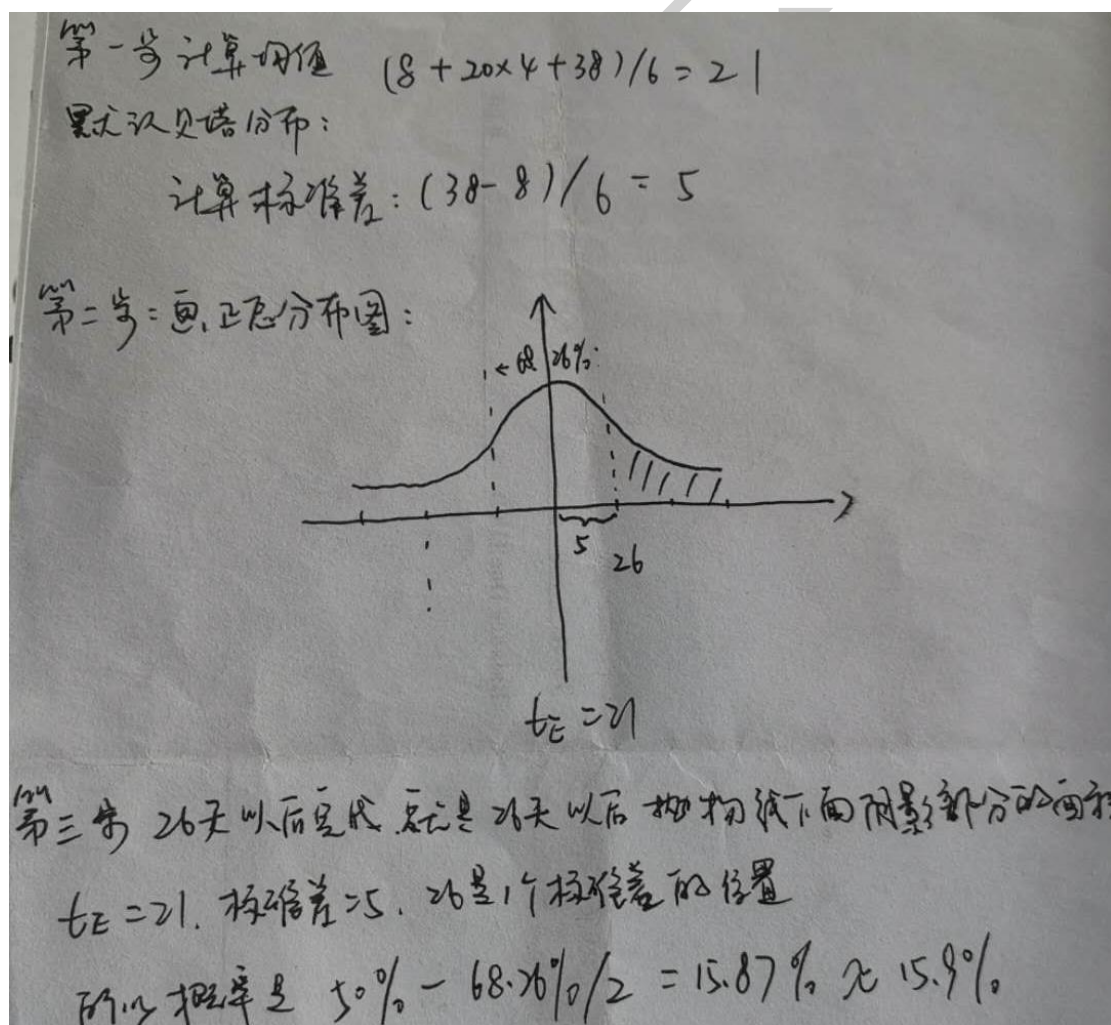 第一步 计算均值 (8+20×4+38)/6=21
默认贝塔分布：
计算标准差：(38-8)/6=5
第二步：画正态分布图：
68.26%
5
26
tE=21
第三步 26天以后完成 就是 26天以后 抛物线下面阴影部分的面积
tE=21. 标准差=5. 26是1个标准差的位置
所以概率是 50%-68.26%/2=15.87%≈15.9%